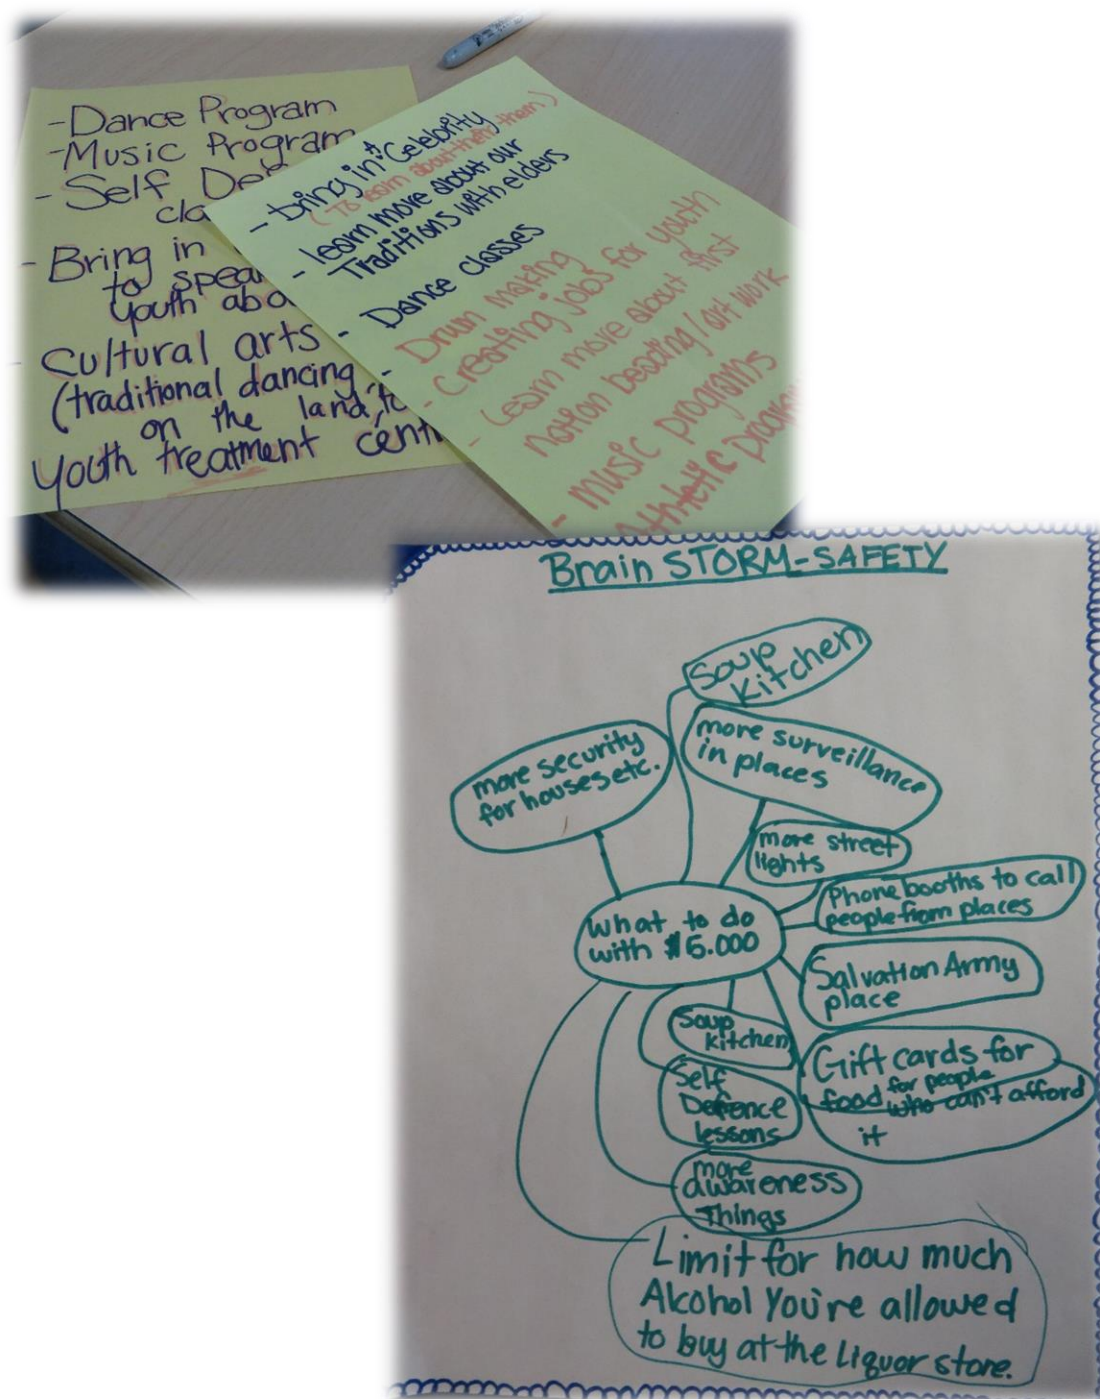 -Dance Program
-Music Program
- Self De
cla
- Bring in
to spea
youth abo
- Cultural arts
(traditional dancing
on the land,
Youth treatment cent
- bring in A Celebrity
(To learn about them)
- learn more about our
Traditions with elders
- Dance classes
- Drum making
- Creating jobs for youth
- Learn more about first
nation beading/art work
- music programs
Athletic program
Brain STORM-SAFETY
Soup
kitchen
more security
for houses etc.
more surveillance
in places
more street
lights
Phone booths to call
people from places
what to do
with $5.000
Salvation Army
place
Soup
kitchen
Gift cards for
food for people
who can't afford
it
Self
Defence
lessons
more
awareness
Things
Limit for how much
Alcohol You're allowed
to buy at the Liquor store.